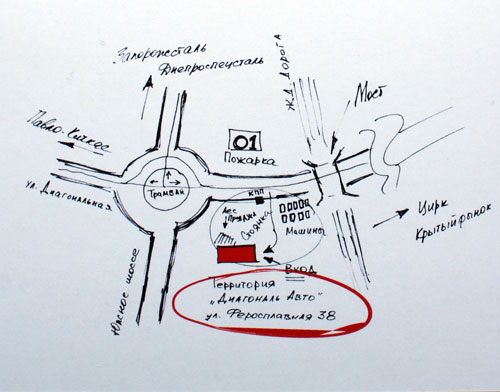 Запорожсталь
Днепроспецсталь
Ж.Д. Дорога
Мост
Павло-Кичкас
01
Пожарка
ул. Диагональная
Трамвай
КПП
Лестница
Стоянка
Машины
Цирк
Крытый рынок
Вход
Южное шоссе
Территория
„Диагональ Авто"
ул. Феросплавная 38